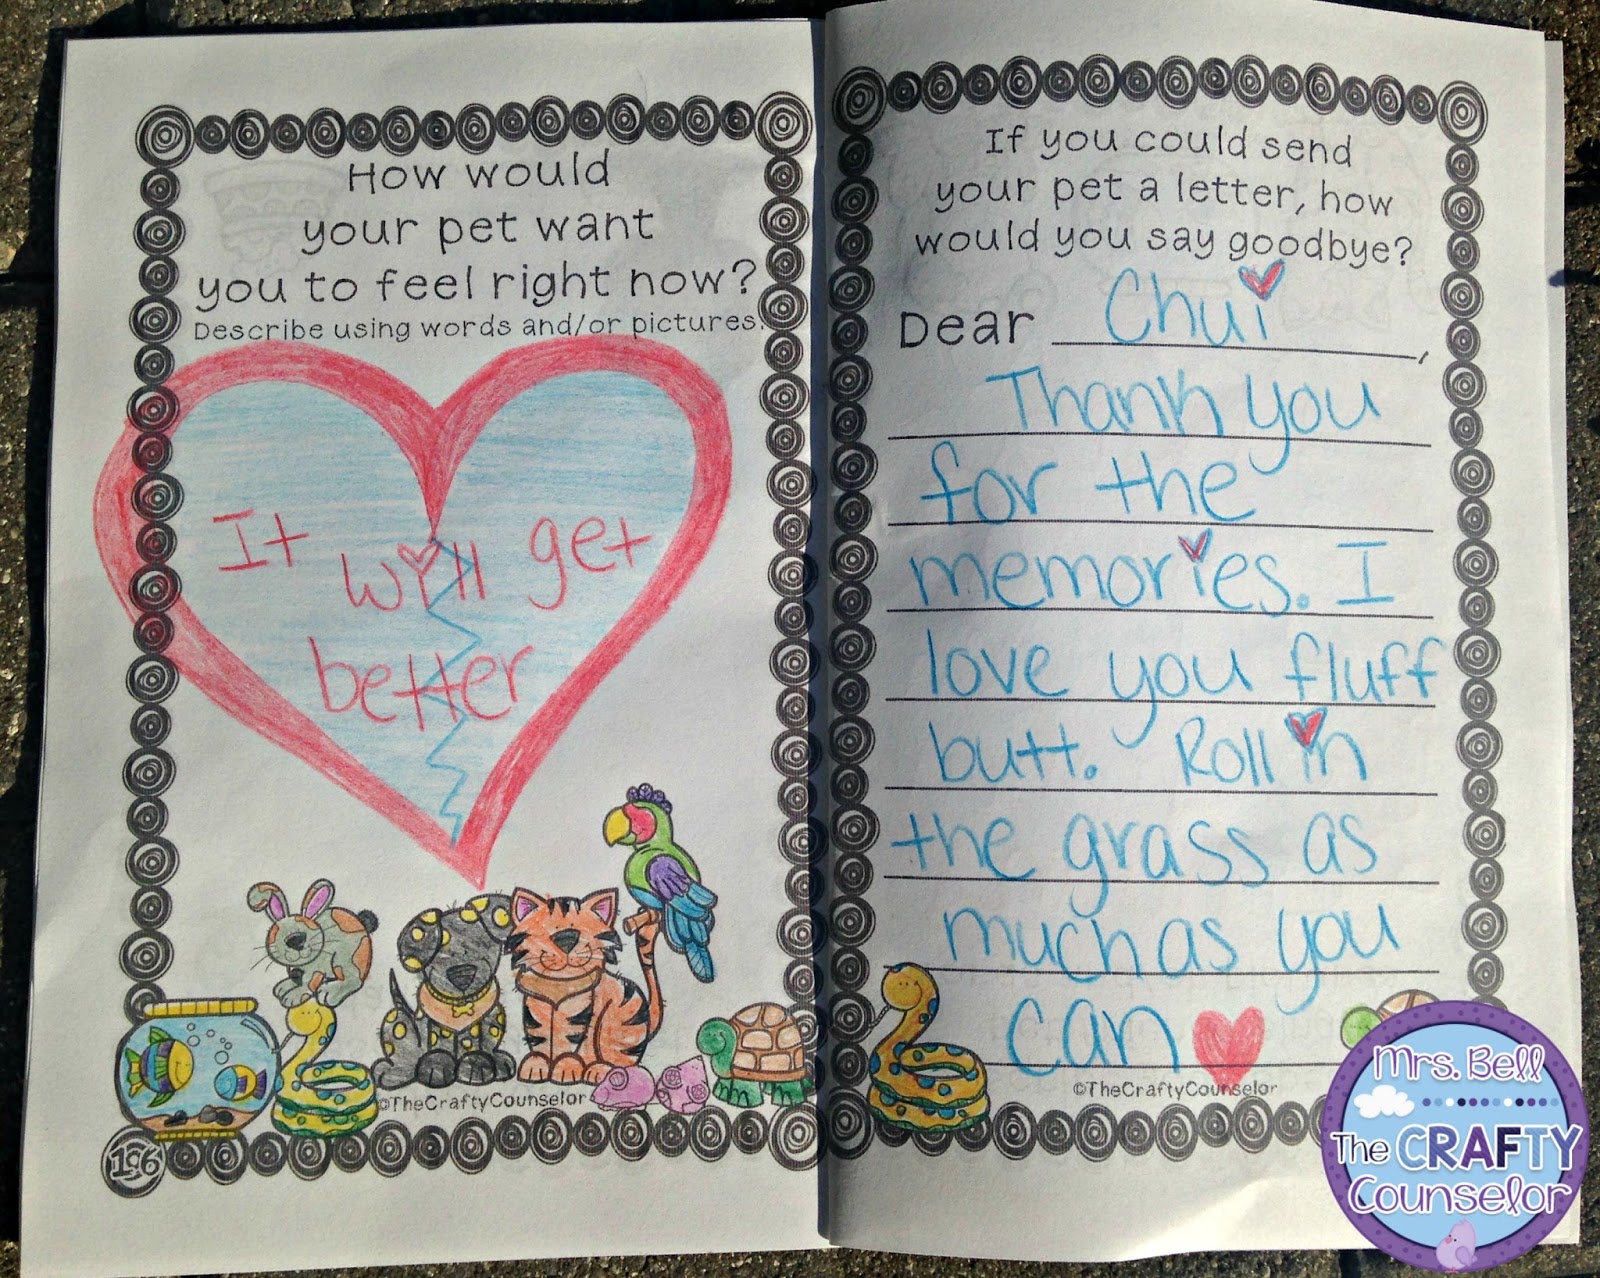 How would
your pet want
you to feel right now?
Describe using words and/or pictures.
It will get
better
©TheCraftyCounselor
If you could send
your pet a letter, how
would you say goodbye?
Dear Chui,
Thank you
for the
memories. I
love you fluff
butt. Roll in
the grass as
much as you
can
©TheCraftyCounselor
Mrs. Bell
The CRAFTY
Counselor